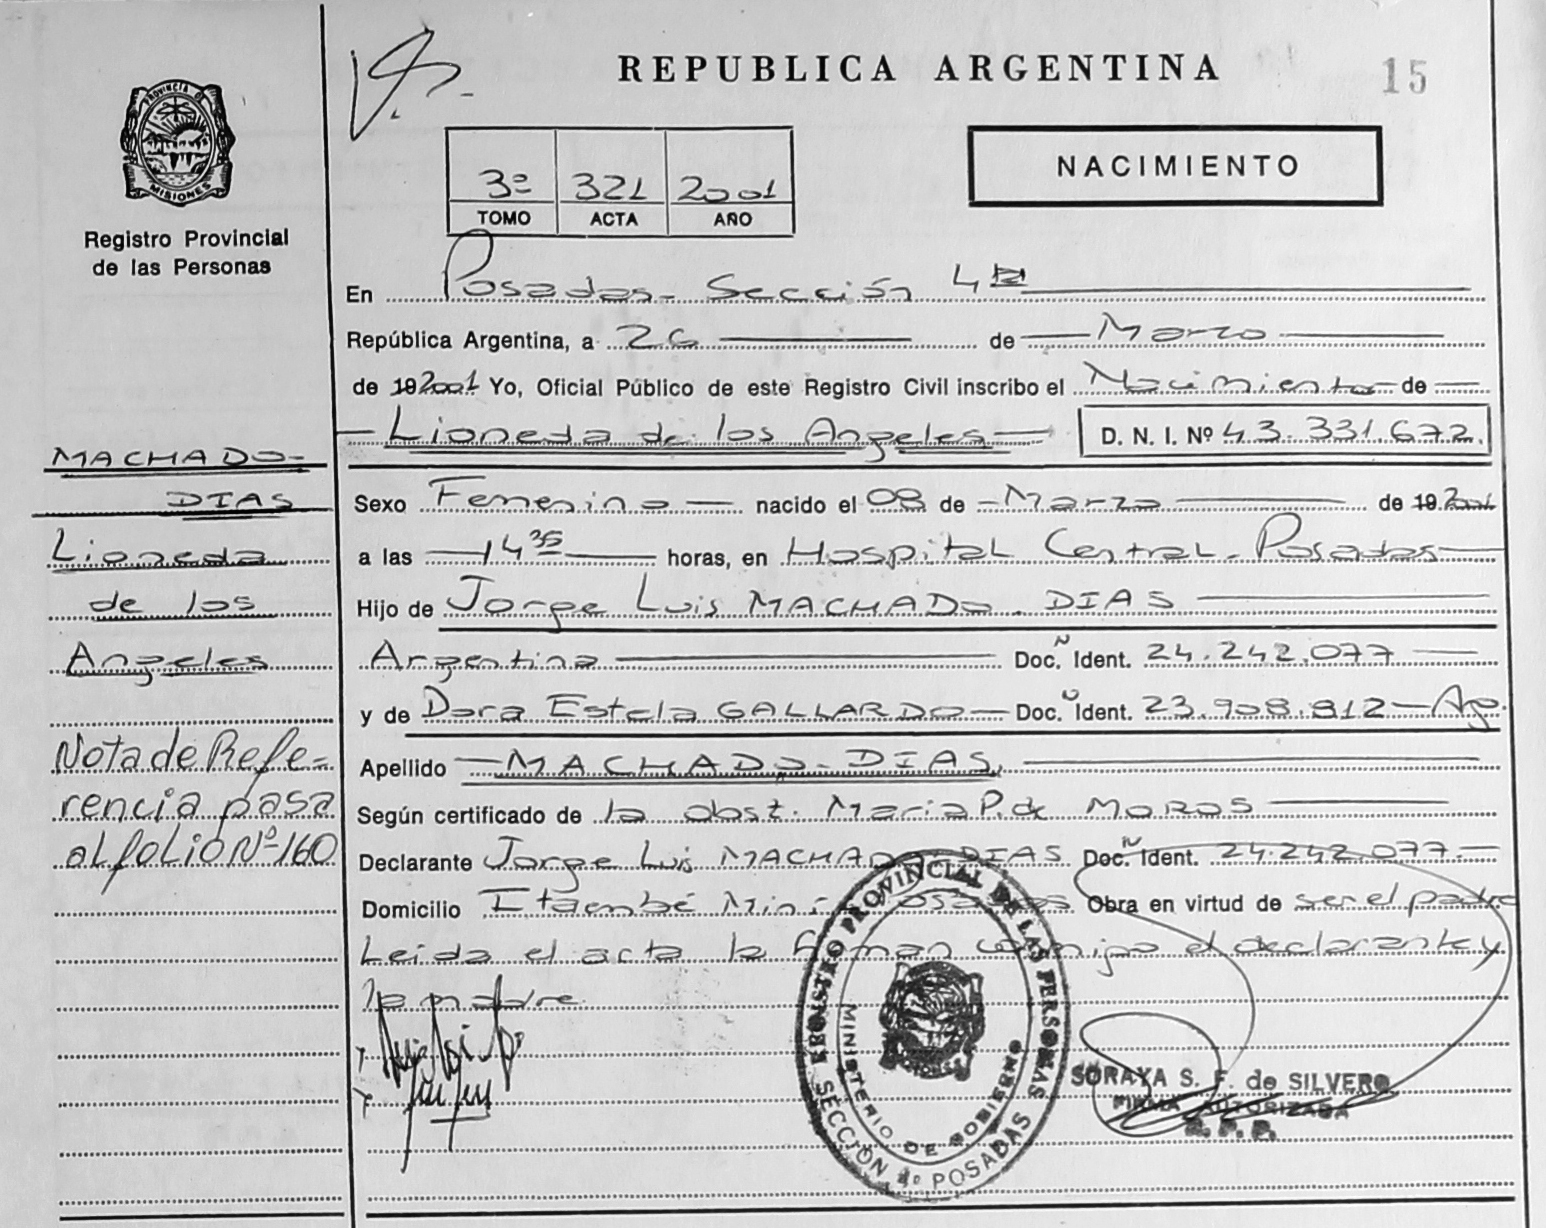 REPUBLICA ARGENTINA
15
PROVINCIA DE
MISIONES
Registro Provincial
de las Personas
3º 321 2001
TOMO ACTA AÑO
NACIMIENTO
En Posadas - Sección 4ta
República Argentina, a 26 de Marzo
de 19 2001 Yo, Oficial Público de este Registro Civil inscribo el Nacimiento de
Lioneda de los Angeles D. N. I. Nº 43.331.672.
MACHADO-
DIAS
Lioneda
de los
Angeles
Nota de Refe-
rencia pasa
al folio Nº 160
Sexo Femenino nacido el 08 de Marzo de 19 2001
a las 14 35 horas, en Hospital Central - Posadas
Hijo de Jorge Luis MACHADO DIAS
Argentina Doc. N Ident. 24.242.077
y de Dora Estela GALLARDO - Doc. Ident. 23.908.812 - Ag.
Apellido MACHADO - DIAS
Según certificado de la obst. Maria P. de MOROS
Declarante Jorge Luis MACHADO DIAS Doc. N Ident. 24.242.077.-
Domicilio Itaembé Miní - Posadas Obra en virtud de ser el padre
Leida el acta la firman conmigo el declarante y
la madre
REGISTRO PROVINCIAL DE LAS PERSONAS
MINISTERIO DE GOBIERNO
SECCIÓN 4º POSADAS
SORAYA S. F. de SILVERO
FIRMA AUTORIZADA
R. P. P.